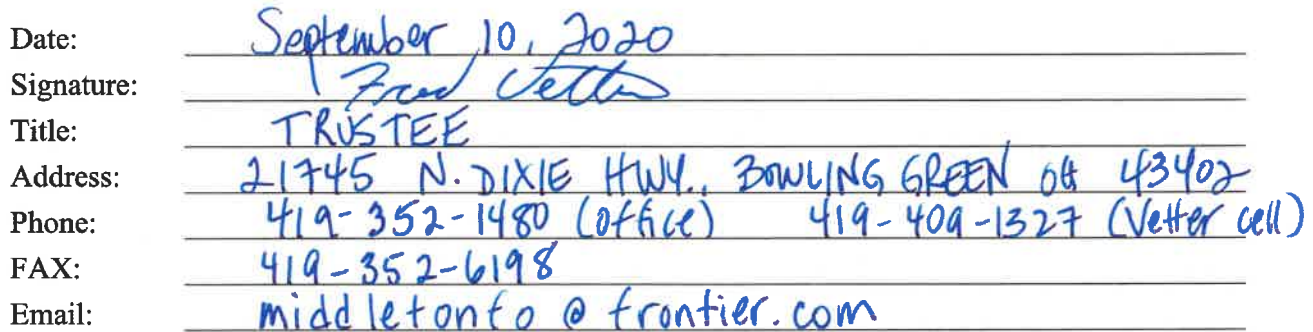 Date: September 10, 2020
Signature: Fred Vetter
Title: TRUSTEE
Address: 21745 N. DIXIE HWY., BOWLING GREEN OH 43402
Phone: 419-352-1480 (office) 419-409-1327 (Vetter cell)
FAX: 419-352-6198
Email: middletonto@frontier.com